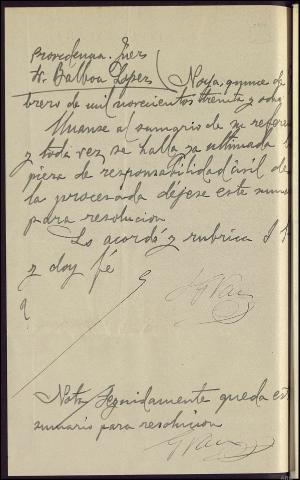 Providencia. Juez
Sr. Balboa López Noya, quince de
brero de mil novecientos treinta y ocho
Unanse al sumario de su refere
y toda vez se halla ya ultimada l
pieza de responsabilidad civil de
la procesada déjese este suma
para resolucion
Lo acordó y rubrica S S
y doy fé
Nota. Seguidamente queda est
sumario para resolucion